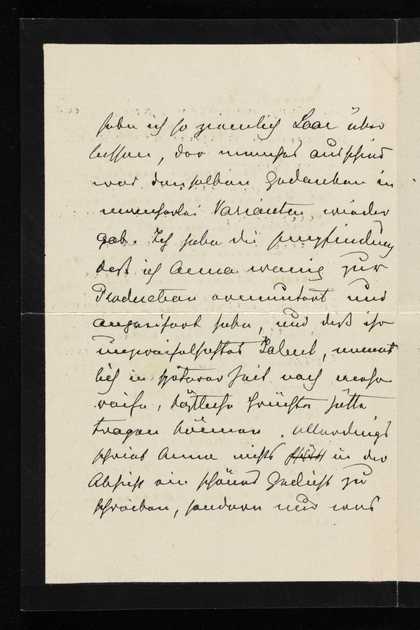 habe ich so ziemlich Laar über
lassen, das manches ausschied
was denselben Gedanken in
mancherlei Varianten wieder
gab. Ich habe die Empfindung
daß ich Anna wenig zur
Production ermuntert und
angeeifert habe, und daß ihr
unzweifelhaftes Talent, nament
lich in späterer Zeit noch mehr
reife, köstliche Früchte hätte
tragen können. Allerdings
schrieb Anna nichts in der
Absicht ein schönes Gedicht zu
schreiben, sondern nur was